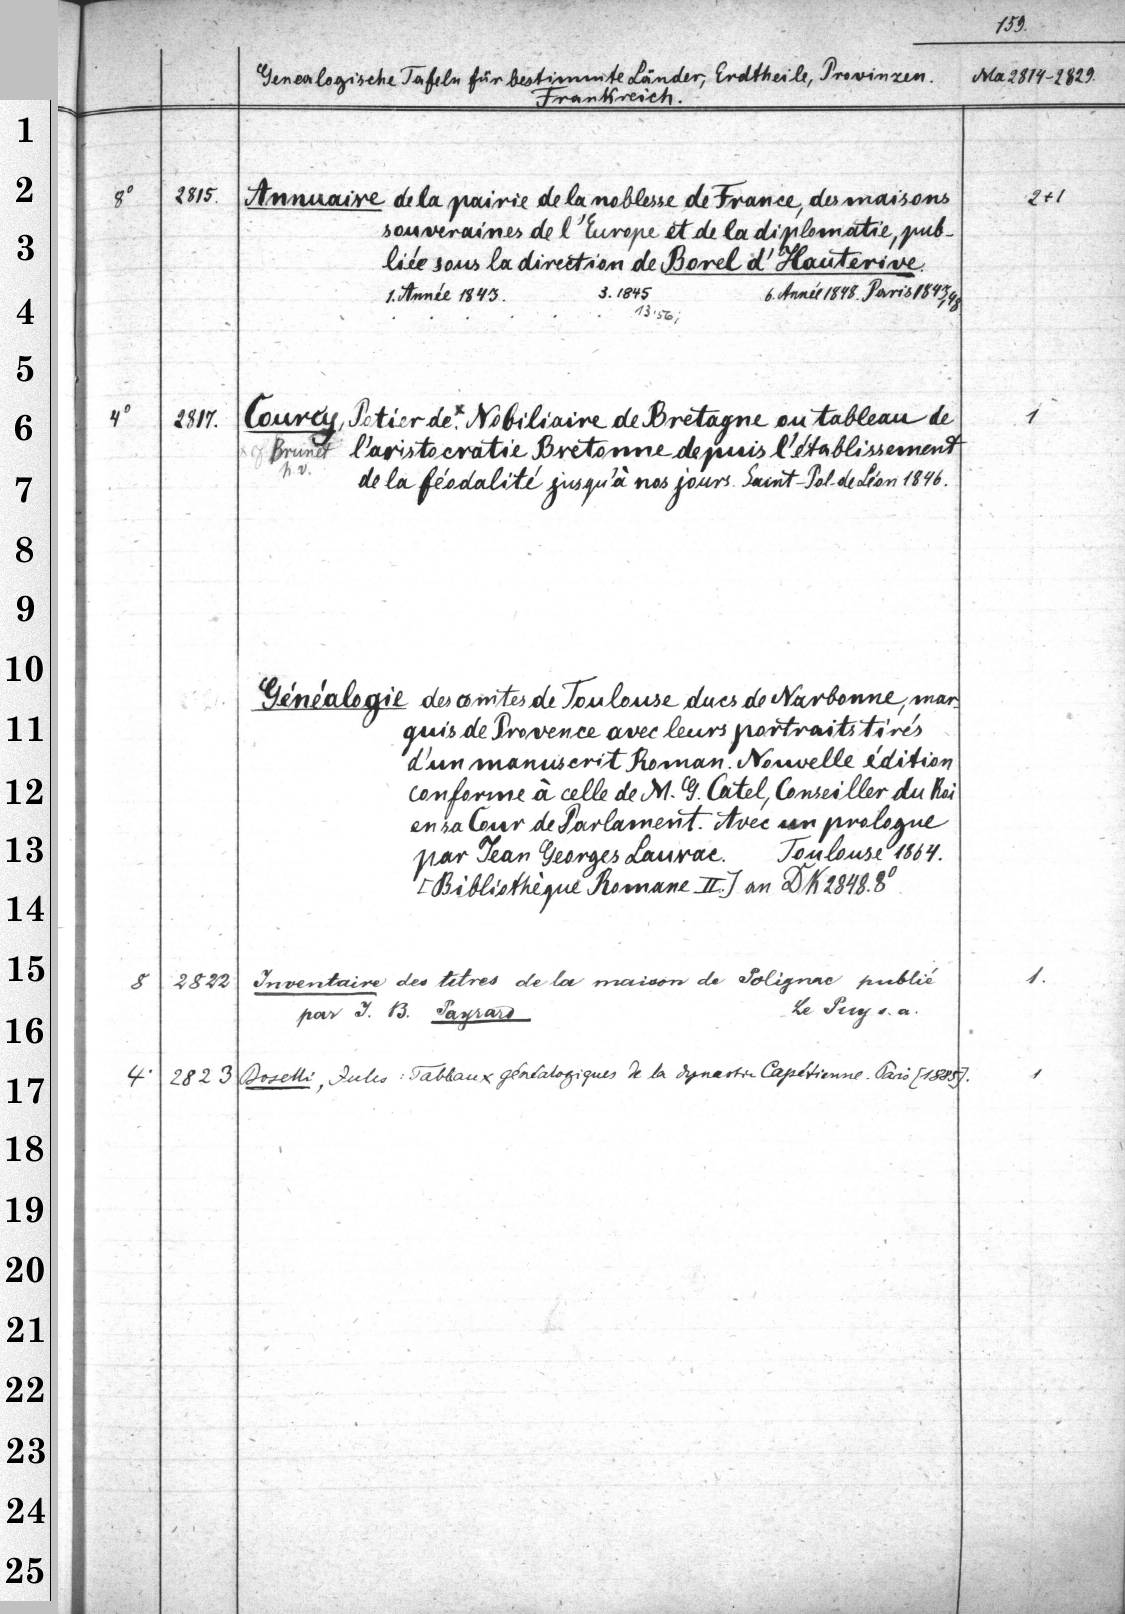 159.
Genealogische Tafeln für bestimmte Länder, Erdtheile, Provinzen. Ma 2814-2829.
Frankreich.
1
2
8° 2815. Annuaire de la pairie de la noblesse de France, des maisons 2+1
3
souveraines de l'Europe et de la diplomatie, pub-
liée sous la direction de Borel d'Hauterive.
4
1. Année 1843. 3. 1845 6. Année 1848. Paris 1843, 48
13. 56;
5
6
4° 2817. Courcy, Potier de.x Nobiliaire de Bretagne ou tableau de 1
x cf Brunet l'aristocratie Bretonne depuis l'établissement
h. v.
7
de la féodalité jusqu'à nos jours. Saint-Pol-de Léon 1846.
8
9
10
Généalogie des comtes de Toulouse ducs de Narbonne, mar-
11
quis de Provence avec leurs portraits tirés
d'un manuscrit Roman. Nouvelle édition
12
conforme à celle de M. G. Catel, Conseiller du Roi
en sa Cour de Parlament. Avec un prologue
13
par Jean Georges Lauvac. Toulouse 1864.
[Bibliothèque Romane II.] an DK 2848. 8°
14
15
8 2822 Inventaire des titres de la maison de Polignac publié 1.
par J. B. Payrard Le Puy s. a.
16
17
4° 2823 Dosetti, Jules: Tableaux généalogiques de la dynastie Capétienne. Paris [1885]. 1
18
19
20
21
22
23
24
25